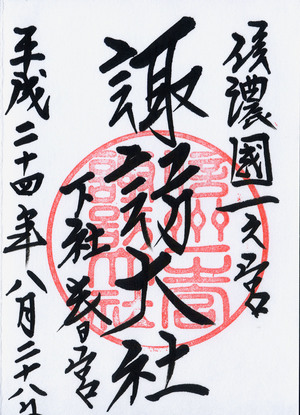 信濃國一之宮
諏訪大社
下社春宮
平成二十四年八月二十八日